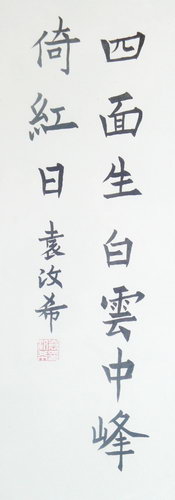 四面生白雲中峰
倚紅日
袁汝希